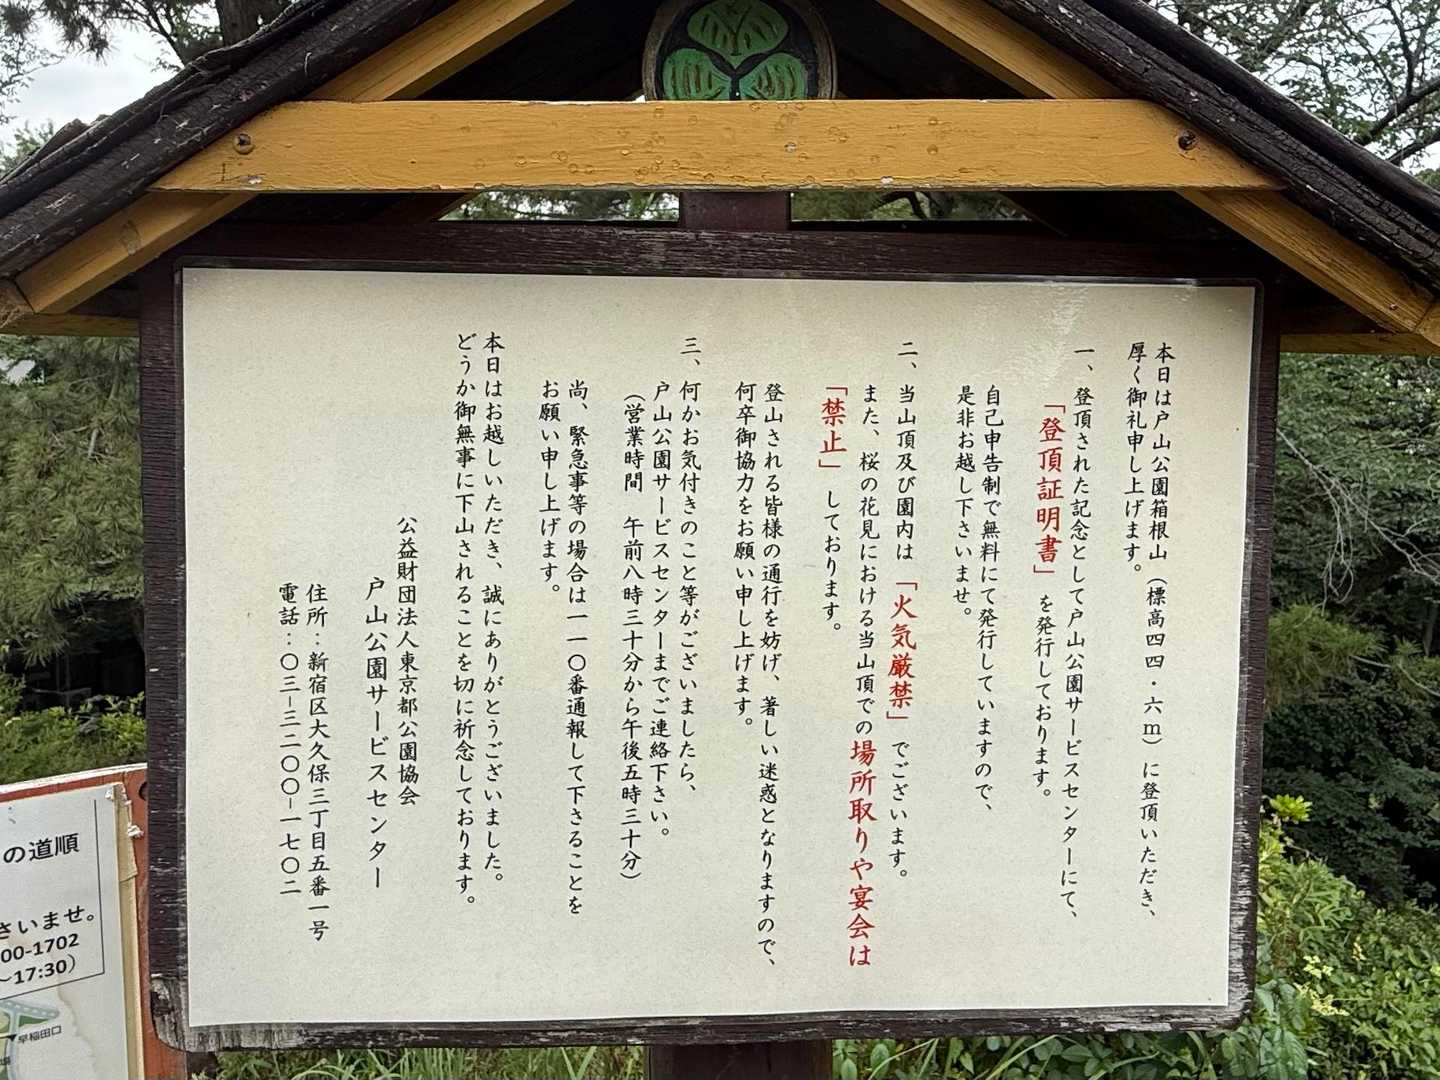 本日は戸山公園箱根山（標高四四・六ｍ）に登頂いただき、
厚く御礼申し上げます。
一、登頂された記念として戸山公園サービスセンターにて、
「登頂証明書」を発行しております。
自己申告制で無料にて発行していますので、
是非お越し下さいませ。
二、当山頂及び園内は「火気厳禁」でございます。
また、桜の花見における当山頂での場所取りや宴会は
「禁止」しております。
登山される皆様の通行を妨げ、著しい迷惑となりますので、
何卒御協力をお願い申し上げます。
三、何かお気付きのこと等がございましたら、
戸山公園サービスセンターまでご連絡下さい。
（営業時間　午前八時三十分から午後五時三十分）
尚、緊急事等の場合は一一〇番通報して下さることを
お願い申し上げます。
本日はお越しいただき、誠にありがとうございました。
どうか御無事に下山されることを切に祈念しております。
公益財団法人東京都公園協会
戸山公園サービスセンター
住所：新宿区大久保三丁目五番一号
電話：〇三－三二〇〇－一七〇二
の道順
さいませ。
00-1702
～17:30）
早稲田口